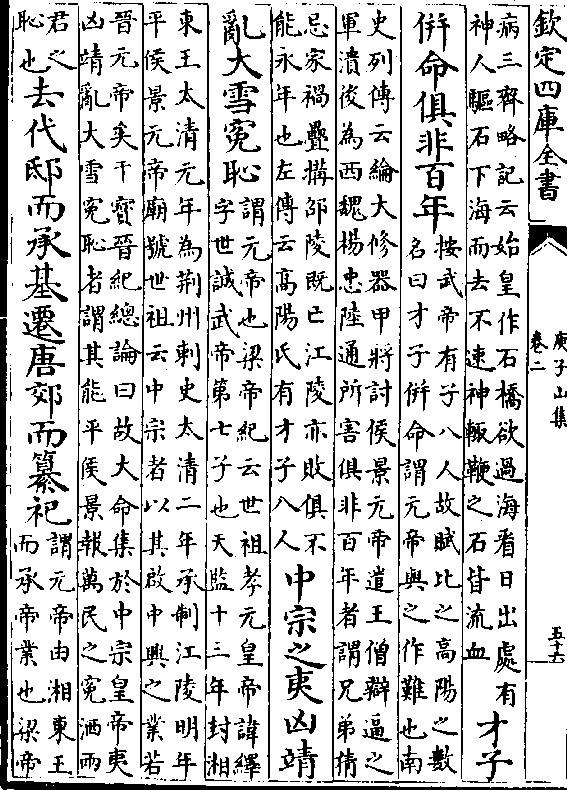 欽定四庫全書
庚子山集
卷二
五十六
病三齊略記云始皇作石橋欲過海看日出處有
神人驅石下海而去不速神輙鞭之石皆流血
才子
併命俱非百年
按武帝有子八人故賦比之高陽之數
名曰才子併命謂元帝與之作難也南
史列傳云綸大修器甲將討侯景元帝遣王僧辯逼之
軍潰後為西魏楊忠陸通所害俱非百年者謂兄弟猜
忌家禍疊搆邵陵既已江陵亦敗俱不
能永年也左傳云高陽氏有才子八人
中宗之夷凶靖
亂大雪冤恥
謂元帝也梁帝紀云世祖孝元皇帝諱繹
字世誠武帝第七子也天監十三年封湘
東王太清元年為荆州刺史太清二年承制江陵明年
平侯景元帝廟號世祖云中宗者以其啟中興之業若
晉元帝矣干寳晉紀總論曰故大命集於中宗皇帝夷
凶靖亂大雪冤恥者謂其能平侯景報萬民之冤洒兩
君之
恥也
去代邸而承基遷唐郊而纂祀
謂元帝由湘東王
而承帝業也梁帝